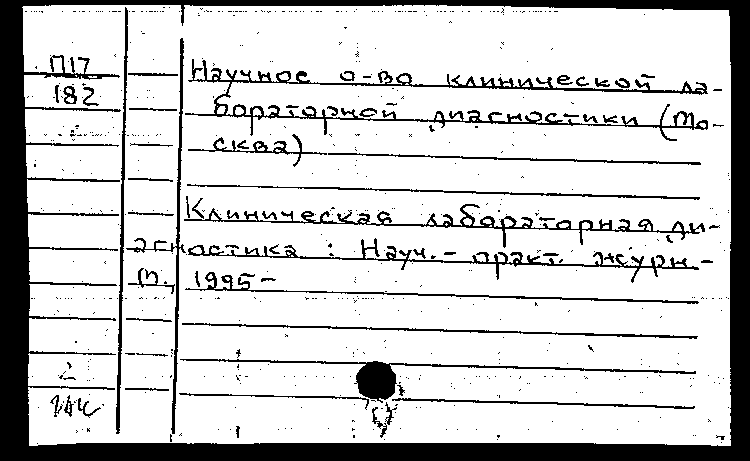 П17
182
Научное о-во клинической ла-
бораторной диагностики (Мо-
сква)
Клиническая лабораторная ди-
агностика : Науч.-практ. журн.-
М., 1995-
2